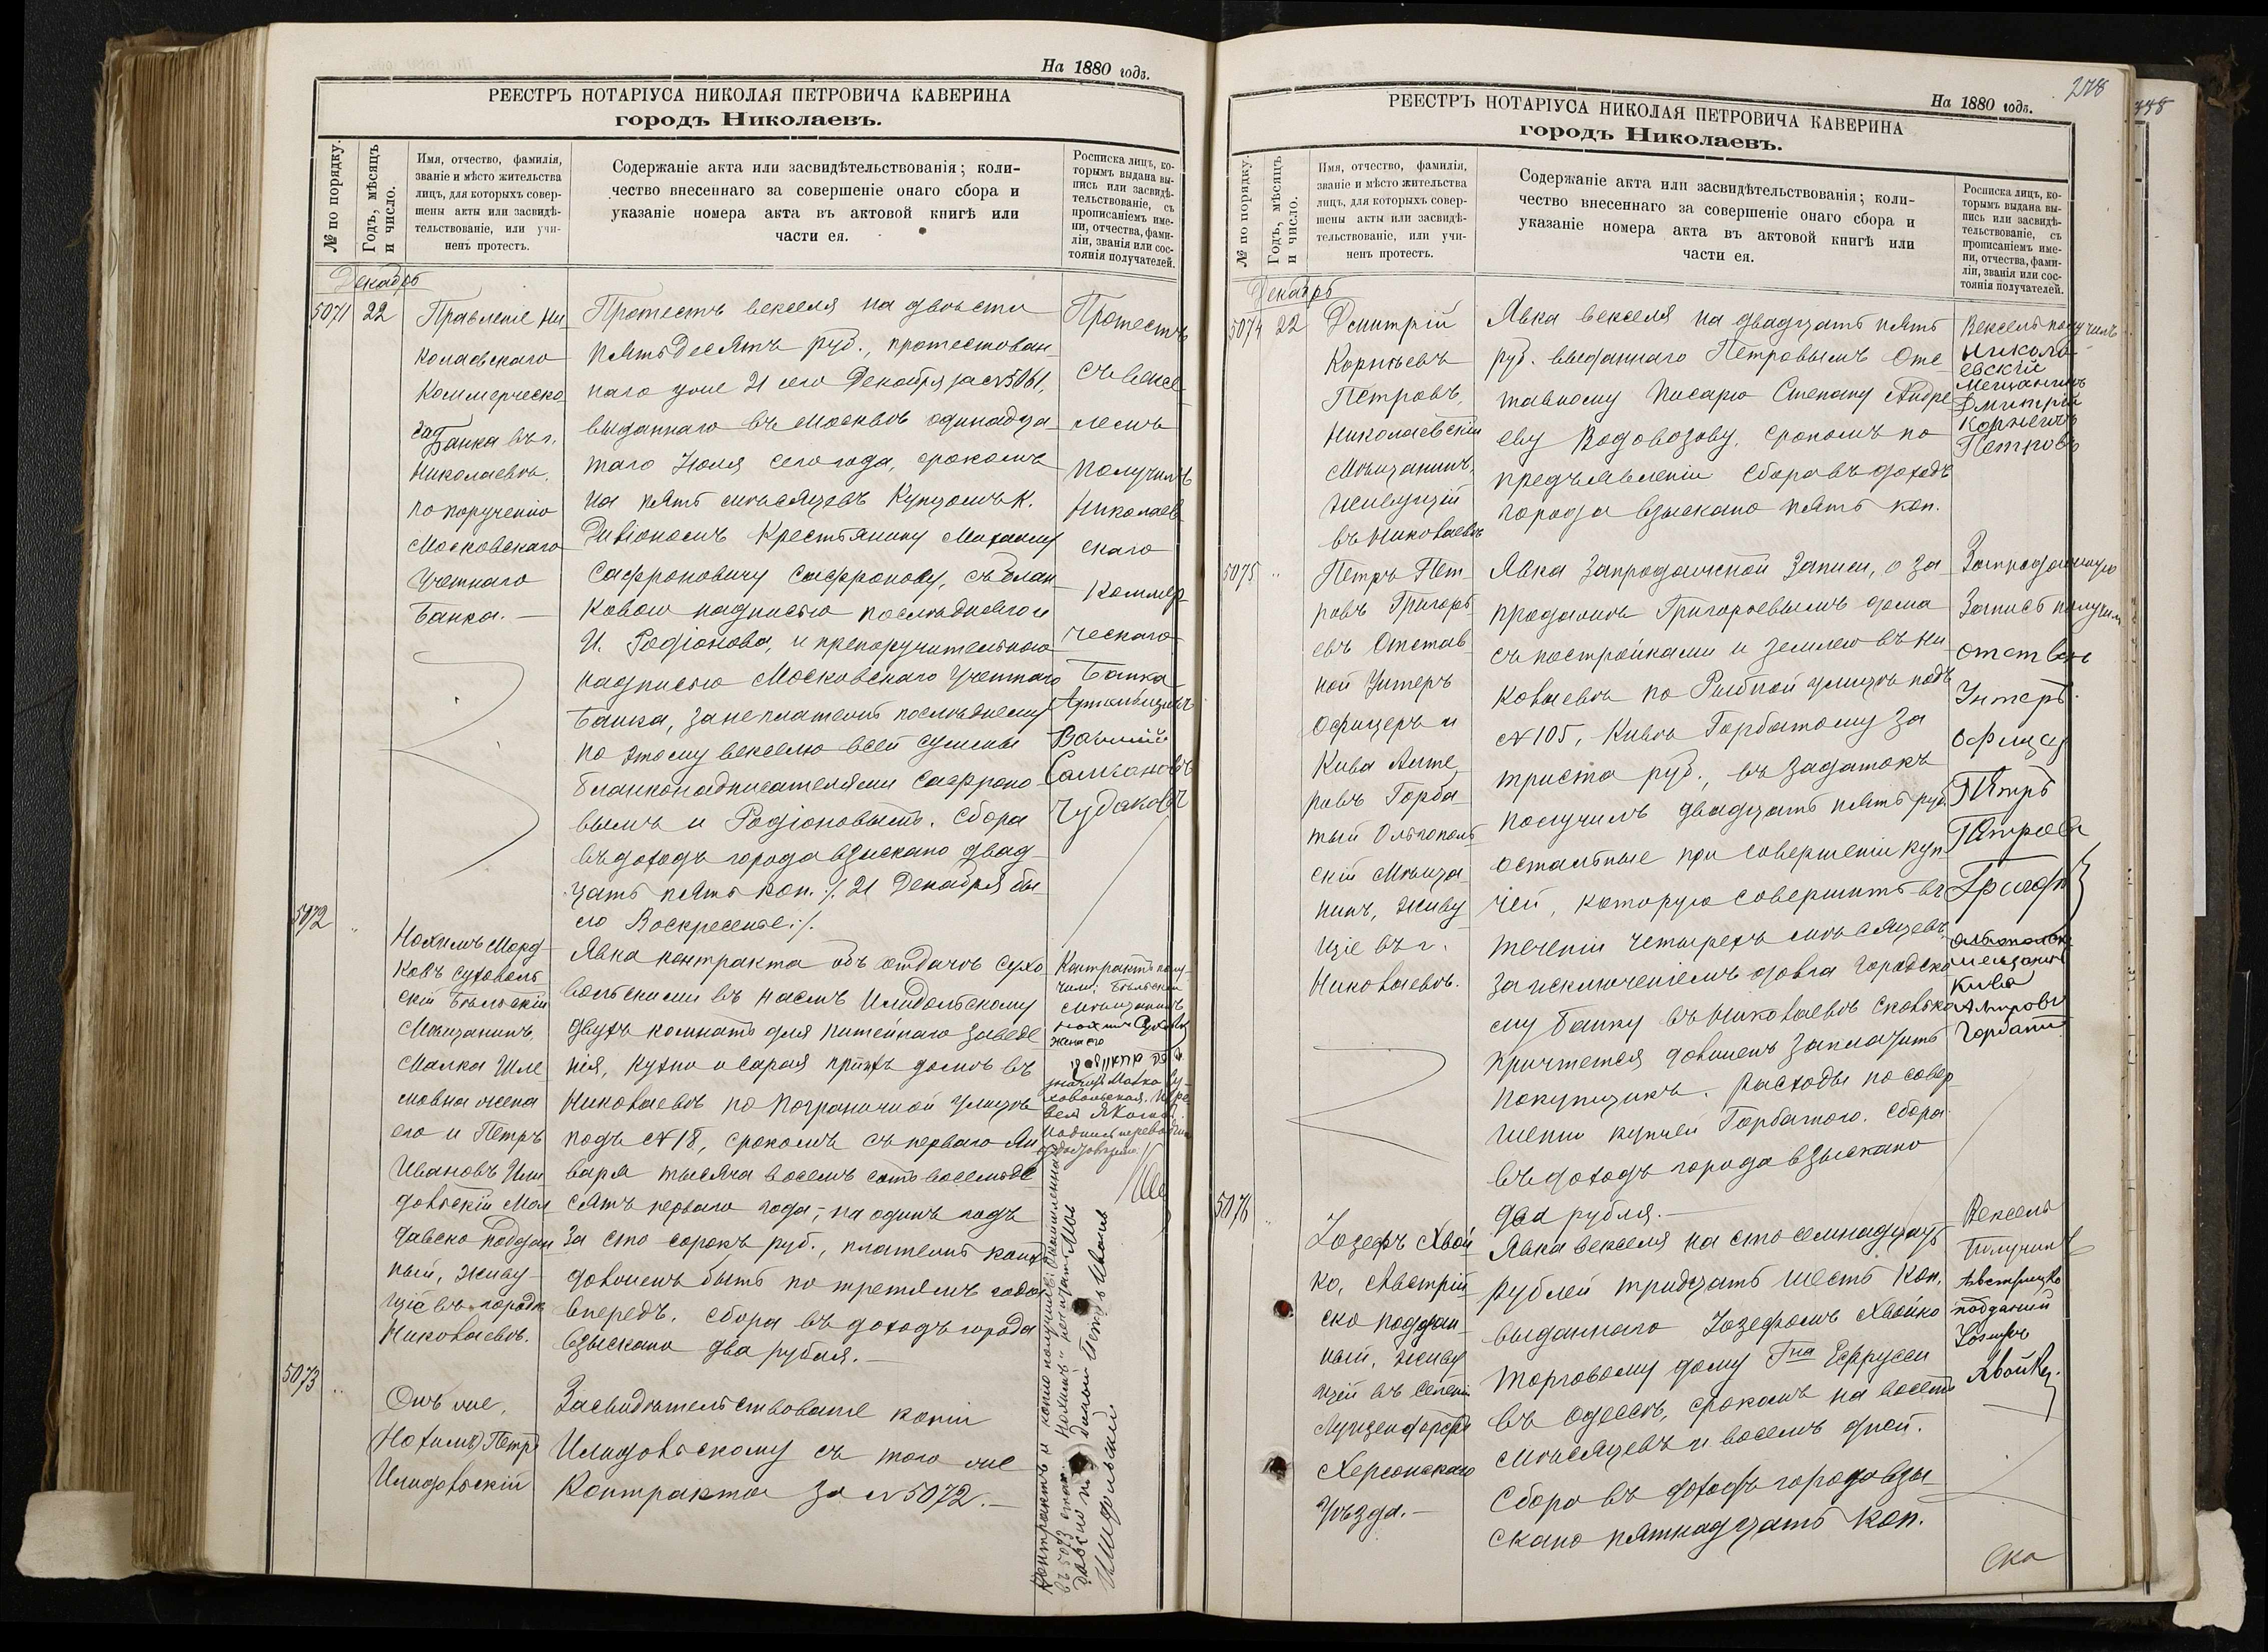 На 1880 годъ.
РЕЕСТРЪ НОТАРІУСА НИКОЛАЯ ПЕТРОВИЧА КАВЕРИНА
городъ Николаевъ.
№ по порядку.
Годъ, мѣсяцъ
и число.
Имя, отчество, фамилія,
званіе и мѣсто жительства
лицъ, для которыхъ совер-
шены акты или засвидѣ-
тельствованіе, или учи-
ненъ протестъ.
Содержаніе акта или засвидѣтельствованія; коли-
чество внесеннаго за совершеніе онаго сбора и
указаніе номера акта въ актовой книгѣ или
части ея.
Росписка лицъ, ко-
торымъ выдана вы-
пись или засвидѣ-
тельствованіе, съ
прописаніемъ име-
ни, отчества, фами-
ліи, званія или сос-
тоянія получателей.
Декабрь
5071
22
Правленіе Ни-
колаевскаго
Коммерческо-
го Банка въ г.
Николаевѣ,
по порученію
Московскаго
Учетнаго
Банка. —
Протестъ векселя на двѣсти
пятьдесятъ руб., протестован-
наго уже 21 сего Декабря за № 5061,
выданнаго въ Москвѣ одинадца-
таго Іюля сего года, срокомъ
на пять мѣсяцевъ Купцомъ К.
Крестьянину Михаилу
Сафроновичу Сафронову, съ блан-
ковою надписью послѣдняго и
И. Родіонова, и препоручительною
надписью Московскаго Учетнаго
Банка, за неплатежъ послѣднему
по этому векселю всей суммы
бланконадписателями Сафроно-
вымъ и Родіоновымъ. Сбора
въ доходъ города взыскано двад-
цать пять коп. :/. 21 Декабря бы-
ло Воскресенье :/.
Протестъ
съ вексе-
лемъ
получилъ
Николаев-
скаго
Коммер-
ческаго
Банка
Артельщикъ
Чудаковъ
5072
"
Нохимъ Морд-
ковъ Суховоль-
скій Бѣльскій
Мѣщанинъ,
Малка Шле-
мовна жена
его и Петръ
Ивановъ Или-
довьскій Мол-
давско поддан-
ный, живу-
щіе въ городѣ
Николаевѣ.
Явка контракта объ отдачѣ Сухо-
вольскими въ наемъ Илидольскому
двухъ комнатъ для питейнаго заведе-
нія, кухни и сарая при ихъ домѣ въ
Николаевѣ по Пограничной улицѣ
подъ № 18, срокомъ съ перваго Ян-
варя тысяча восемь сотъ восемьде-
сятъ перваго года, на одинъ годъ
за сто сорокъ руб., платежъ коихъ
долженъ быть по третямъ года
впередъ. Сбора въ доходъ города
взыскано два рубля. —
Контрактъ полу-
чили: Бѣльскій
мѣщанинъ
жена его
5073
"
Онъ же,
Нохимъ, Петръ
Илидовьскій
Засвидѣтельствованіе копіи
Илидовьскому съ того же
Контракта за № 5072. —
Контрактъ и копію получилъ.
На 1880 годъ.
278
РЕЕСТРЪ НОТАРІУСА НИКОЛАЯ ПЕТРОВИЧА КАВЕРИНА
городъ Николаевъ.
№ по порядку.
Годъ, мѣсяцъ
и число.
Имя, отчество, фамилія,
званіе и мѣсто жительства
лицъ, для которыхъ совер-
шены акты или засвидѣ-
тельствованіе, или учи-
ненъ протестъ.
Содержаніе акта или засвидѣтельствованія; коли-
чество внесеннаго за совершеніе онаго сбора и
указаніе номера акта въ актовой книгѣ или
части ея.
Росписка лицъ, ко-
торымъ выдана вы-
пись или засвидѣ-
тельствованіе, съ
прописаніемъ име-
ни, отчества, фами-
ліи, званія или сос-
тоянія получателей.
Декабрь
5074
22
Дмитрій
Корнѣевъ
Петровъ,
Николаевскій
Мѣщанинъ,
живущій
въ Николаевѣ
Явка векселя на двадцать пять
руб. выданнаго Петровымъ От-
тавному Писарю Степану Андре-
еву Водовозову, срокомъ по
предъявленіи Сбора въ доходъ
города взыскано пять коп.
Вексель получилъ
Никола-
евскій
Мещанинъ
Дмитрій
Корнеевъ
Петровъ
5075
"
Петръ Пет-
ровъ Григорь-
евъ Отстав-
ной Унтеръ
Офицеръ и
Кива
Горба-
тый Ольгополь-
скій Мѣща-
нинъ, живу-
щіе въ г.
Николаевѣ.
Явка Запродажной Записи, о за-
продажѣ Григорьевымъ дома
съ постройками и землею въ Ни-
колаевѣ по Рыбной улицѣ подъ
№ 105, Кивѣ Горбатому за
триста руб., въ задатокъ
получилъ двадцать пять руб.
остальные при совершеніи куп-
чей, которую совершить въ
теченіи четырехъ мѣсяцевъ
за исключеніемъ долга Городско-
му Банку въ Николаевѣ сколько
причтется долженъ заплатить
покупщикъ. Расходы по совер-
шенію купчей Горбатого. Сбора
въ доходъ города взыскано
два рубля. —
Запродажную
Запись получили
отстав
Унтеръ
офицер
Петръ
Петровъ
Кива
Горбатий
5076
"
Іозефъ Хвой-
ко, Австрій-
ско поддан-
ный, живу-
щій въ селеніи
Херсонскаго
Уѣзда. —
Явка векселя на сто семнадцать
рублей тридцать шесть коп.
выданнаго Іозефомъ Хвойко
торговому дому Гна Ефрусси
въ Одессѣ, срокомъ на восемь
мѣсяцевъ и восемь дней.
Сбора въ доходъ города взы-
скано пятнадцать коп.
Вексель
Получилъ
Австрицко
подданий